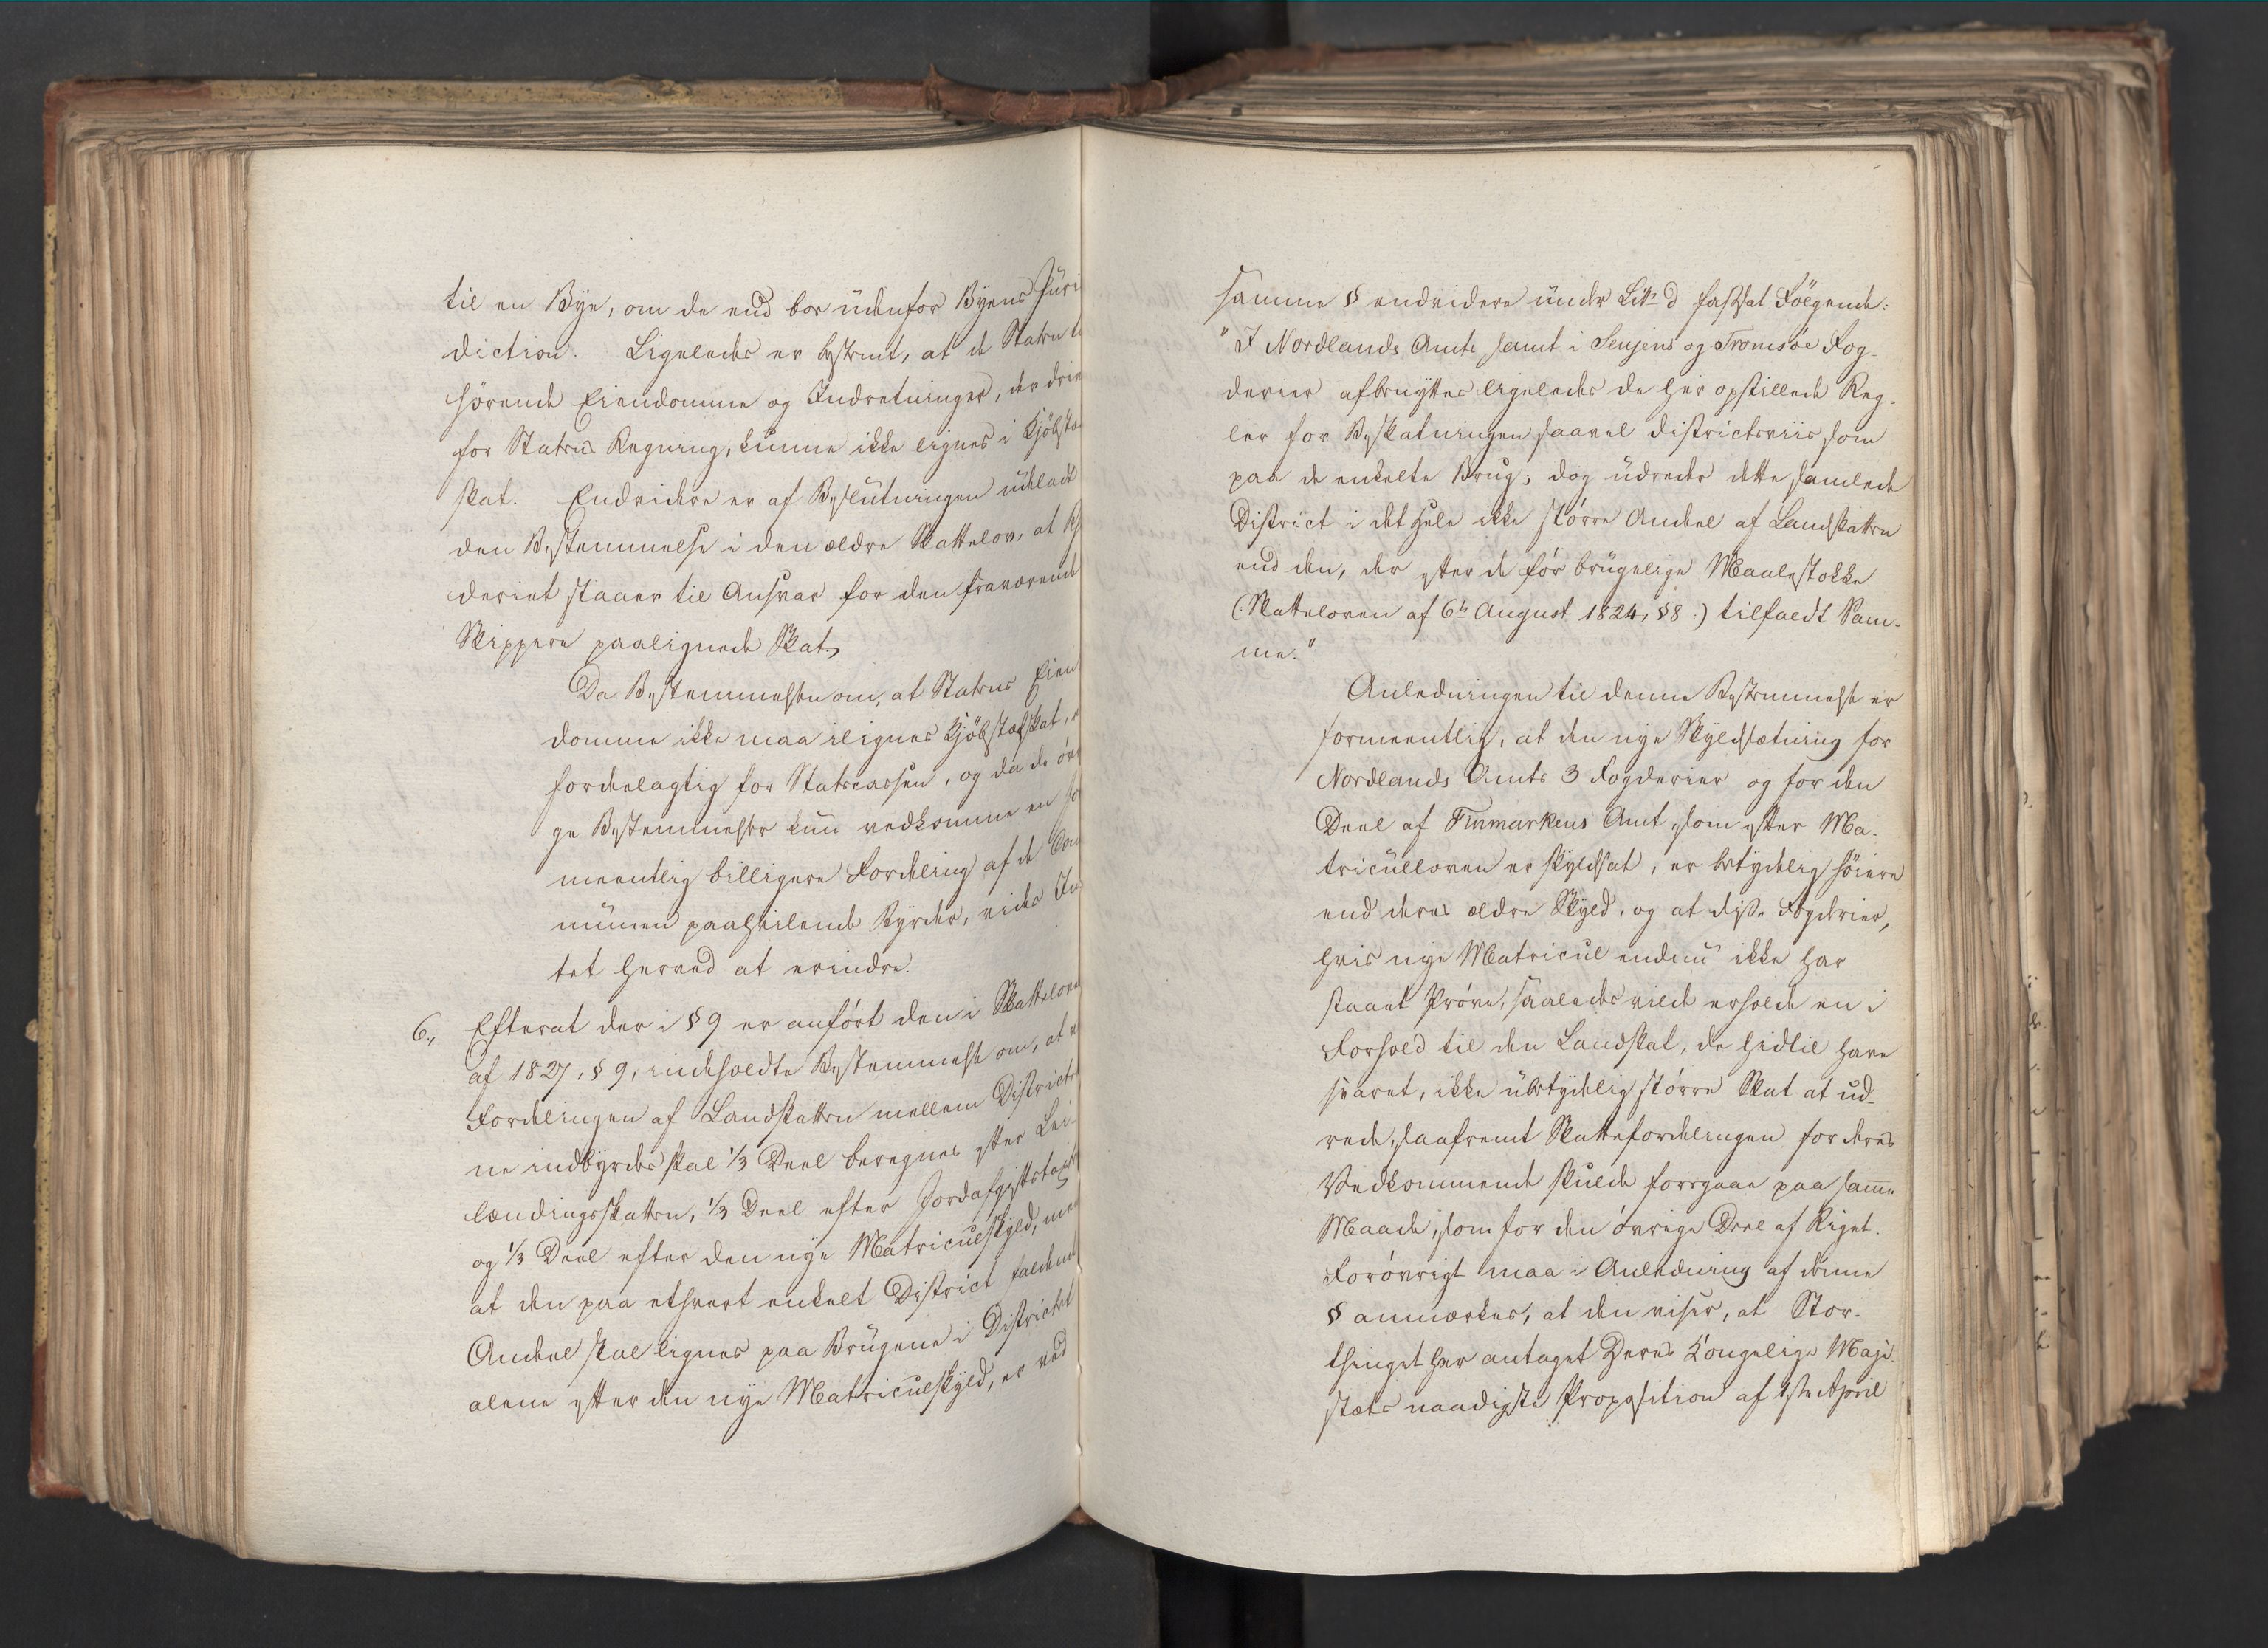 til en Bye, om de end bor udenfor Byens Juri
diction. Ligeledes er bestemt, at de Staten ti
hørende Eiendomme og Indretninger, der driv
for Statens Regning, kunne ikke lignes i Kjøbstæ
skat. Endvidere er af Beslutningen udeladt
den Bestemmelse i den ældre Skattelov, at
deriet staaer til Ansvar for den fraværende
Skippere paalignede Skat.
Da Bestemmelsen om, at Statens Eien
domme ikke maa ilignes Kjøbstadskat, e
fordelagtig for Statscassen, og da de øvr
ge Bestemmelser kun vedkomme en for
meentlig billigere Fordeling af de Com
munen paahvilende Byrder, vides In
tet herved at erindre.
6., Efterat der i § 9 er anført den i Skatteloven
af 1827, § 9, indeholdte Bestemmelse om, at
Fordelingen af Landskatten mellem District
ne indbyrdes skal 1/3 Deel beregnes efter Lei-
lændingsskatten, 1/3 Deel efter Jordafgiftstaxt
og 1/3 Deel efter den nye Matriculskyld, men
at den paa ethvert enkelt District faldende
Andeel skal lignes paa Brugene i Districtet
alene efter den nye Matriculskyld, er ved
samme § endvidere under Litr d fastsat Følgende:
"I Nordlands Amt samt i Senjens og Tromsøe Fog-
derier afbenyttes ligeledes de her opstillede Reg-
ler for Beskatningen saavel districtsviis som
paa de enkelte Brug; dog udredes dette samlede
District i det Hele ikke større Andeel af Landskatten
end den, der efter de før brugelige Maalestokke
(Skatteloven af 6te August 1824, § 8:) tilfaldt Sam-
me."
Anledningen til denne Bestemmelse er
formeentlig, at den nye Skyldsætning for
Nordlands Amts 3 Fogderier og for den
Deel af Finmarkens Amt, som efter Ma-
triculloven er skyldsat, er betydelig høiere
end deres ældre Skyld, og at disse Fogderier,
hvis nye Matricul endnu ikke har
staaet Prøve, saaledes vilde erholde en i
Forhold til den Landskat, de hidtil have
svaret, ikke ubetydelig større Skat at ud-
rede, saafremt Skattefordelingen for deres
Vedkommende skulde foregaae paa samme
Maade, som for den øvrige Deel af Riget.
Forøvrigt maa i Anledning af denne
§ anmærkes, at den viser, at Stor-
thinget har antaget Deres Kongelige Maje-
stæts naadigste Proposition af 1ste April